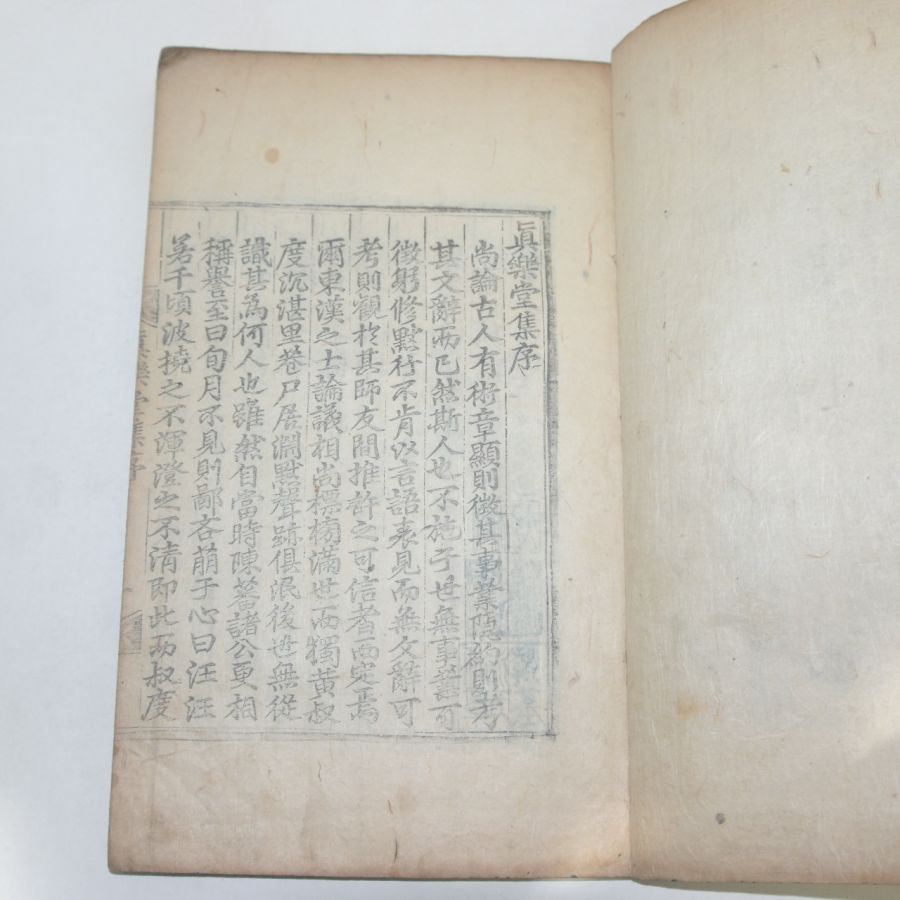 眞樂堂集序
尚論古人有術章顯則徵其事業隱約則考
其文辭而已然斯人也不施于世無事業可
徵躬修黙行不肯以言語表見而無文辭可
考則觀於其師友間推許之可信者而定焉
爾東漢之士論議相尚標榜滿世而獨黃叔
度沉湛里巷尸居淵黙聲跡俱泯後世無從
識其爲何人也雖然自當時陳蕃諸公更相
稱譽至曰旬月不見則鄙吝萠于心曰汪汪
若千頃波撓之不渾澄之不清即此而叔度
眞樂堂集序